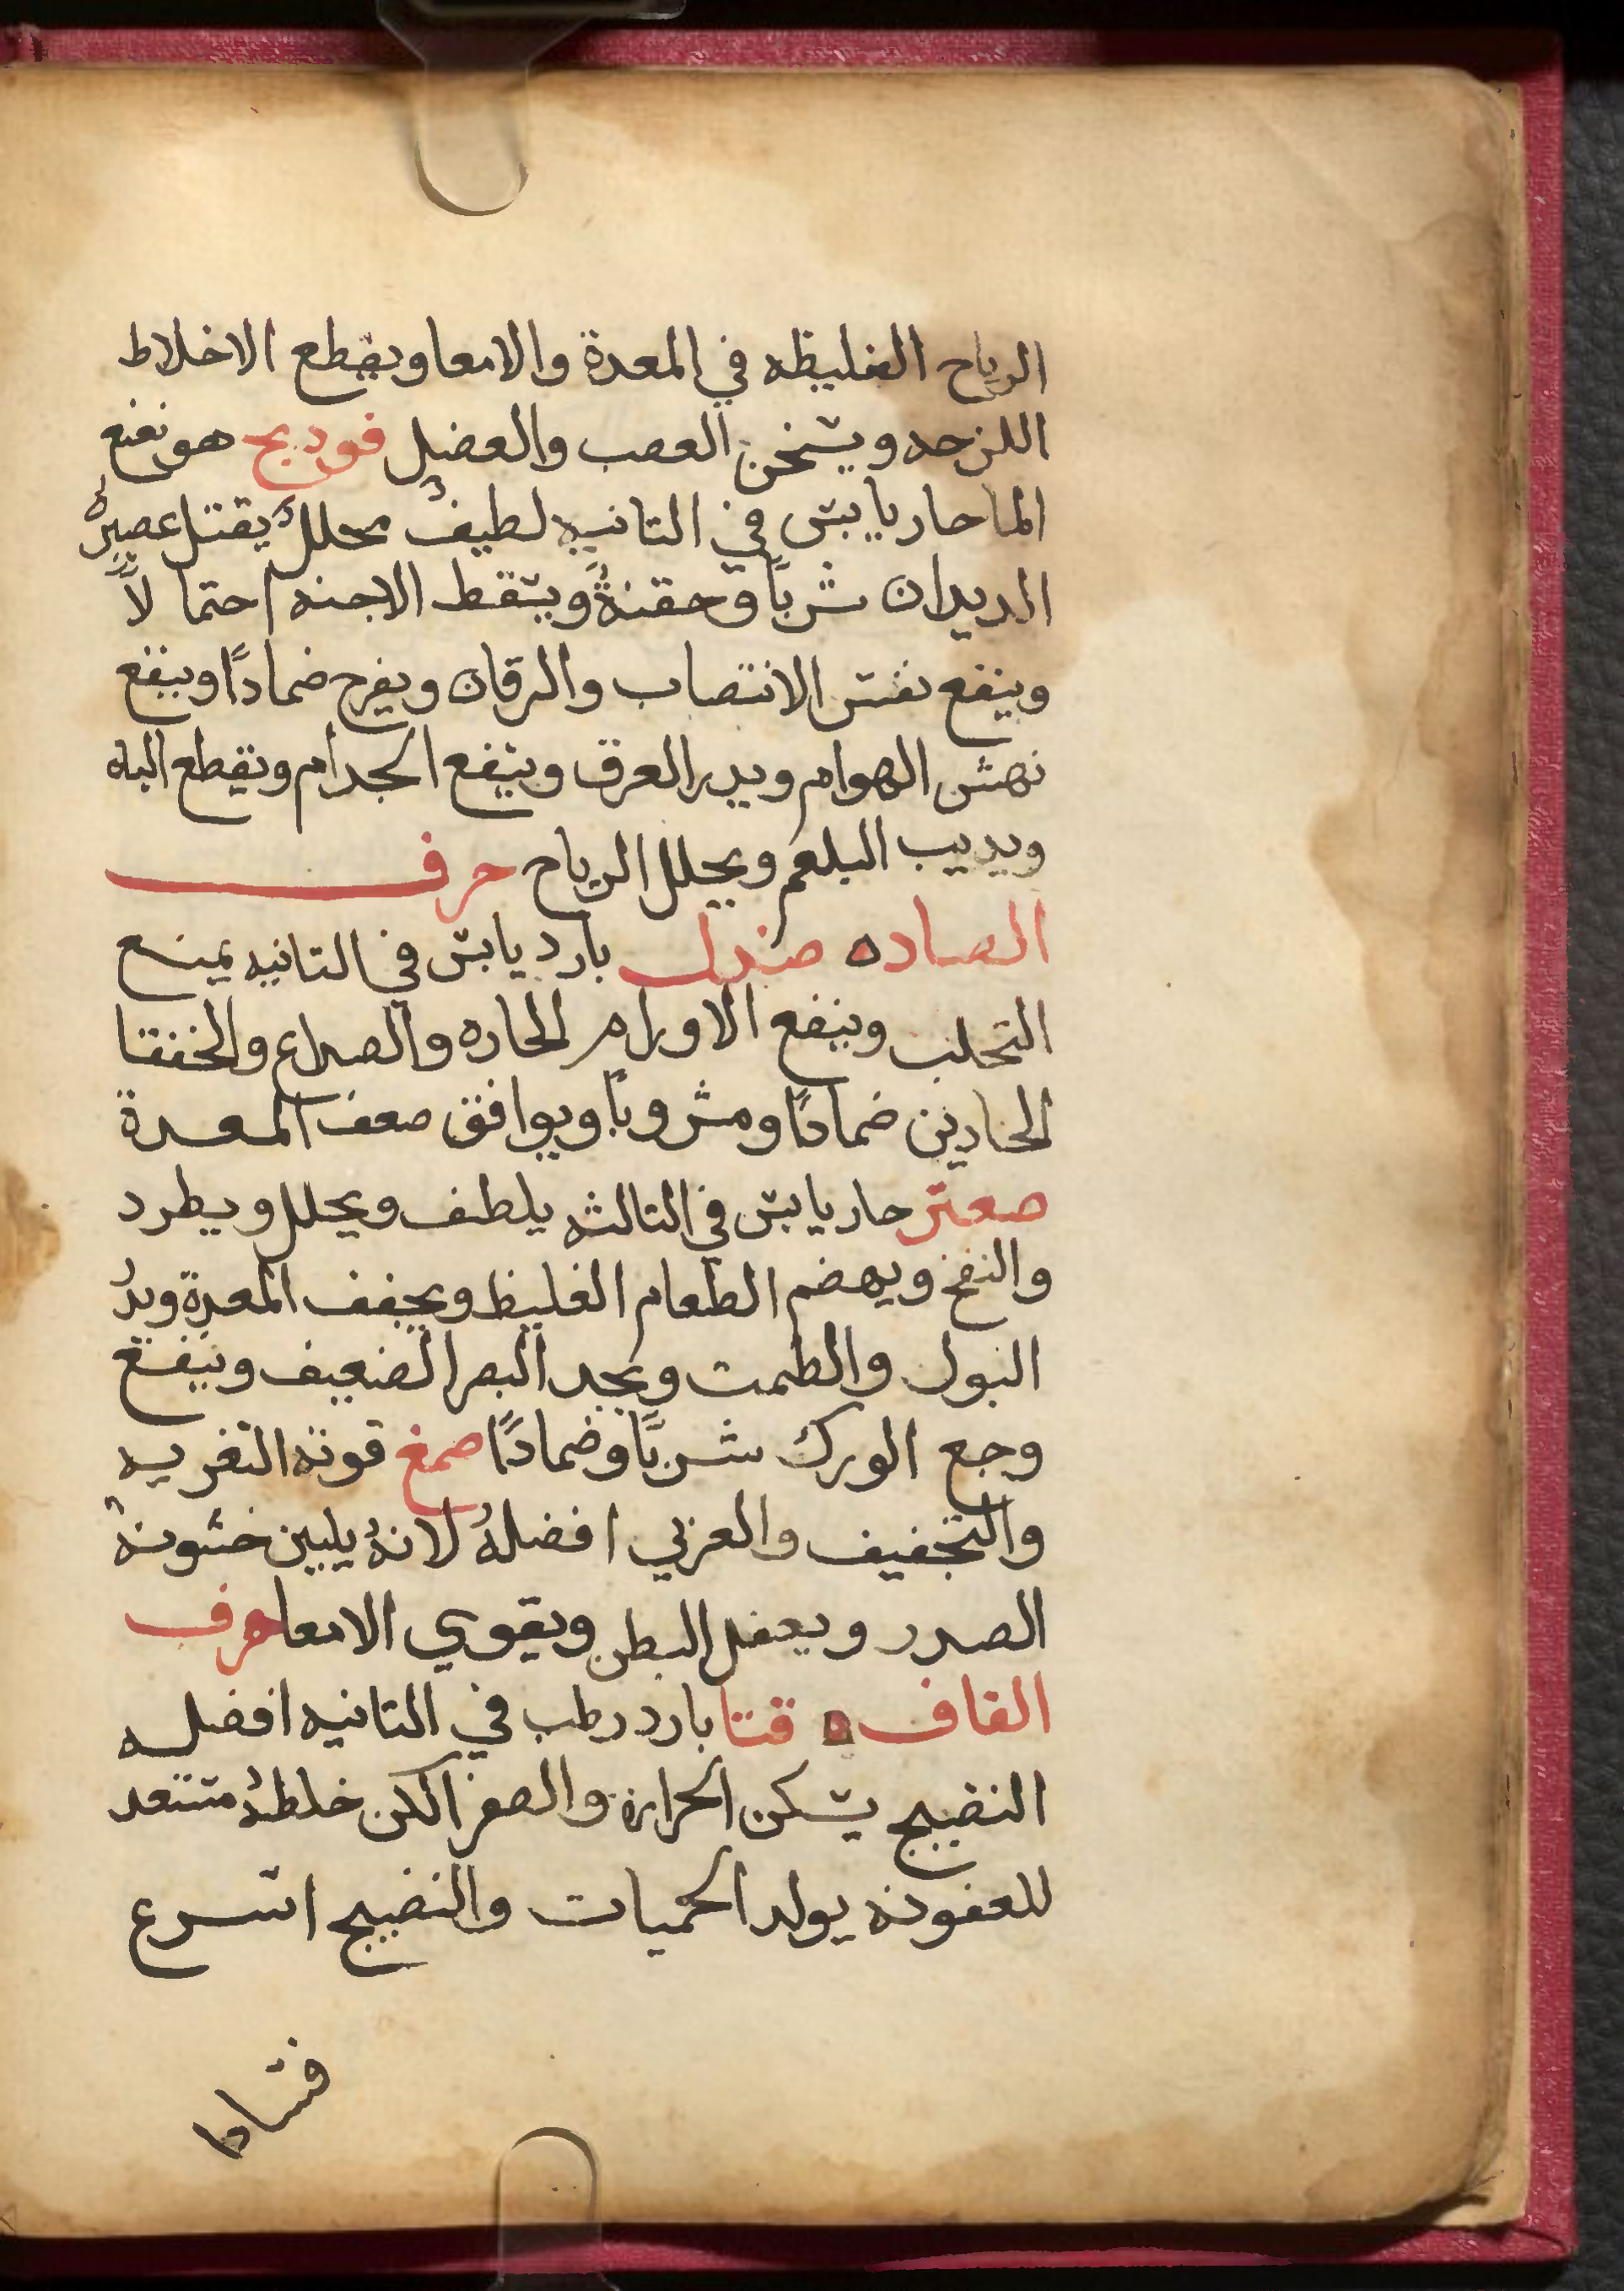 الرياح الغليظه في المعدة والامعا ويقطع الاخلاط
اللزجه ويسخن العصب والعضل فودبج هو نعنع
الما حار يابس في التانيه لطيفٌ محللٌ يقتل عصيرهُ
الديدان شرباً وحقنةً ويسقط الاجنه احتمالاً
وينفع نفس الانتصاب واليرقان ويفرح ضماداً وينفع
نهش الهوام ويدر العرق وينفع الجدام ويقطع الباه
ويديب البلغم ويحلل الرياح حرف
الصاده صندل بارد يابس في التانيه يمنع
التحلب وينفع الاورام الحاره والصداع والخفقا
الحادين ضماداً ومشروباً ويوافق صعف المعدة
صعتر حار يابس في التالثه يلطف ويحلل ويطرد
والنفخ ويهضم الطعام الغليظ ويجفف المعدة ويدُ
البول والطمت ويحد البصر الضعيف وينفع
وجع الورك شرباً وضماداً صمغ قوته التغريه
والتجفيف والعربي افضلهُ لانهُ يليين خشونهْ
الصدر ويعقل البطن ويقوي الامعا حرف
القاف ه قتا بارد رطب في التانيه افضله
النضيج يسكن الحرارة والصفرا لكن خلطهُ مستعد
للعفونه يولد الحميات والنضيج اسرع
فسادا